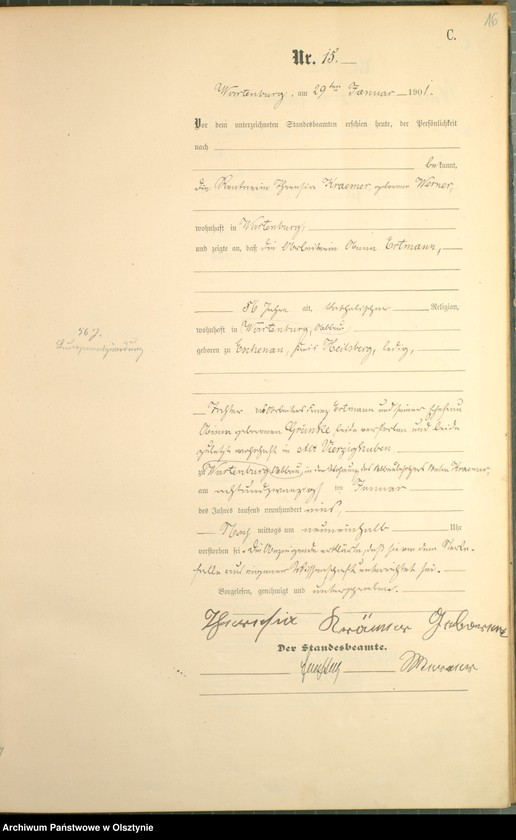 16
C.
Nr. 15.
Wartenburg, am 29ten Januar 1901.
Vor dem unterzeichneten Standesbeamten erschien heute, der Persönlichkeit
nach
bekannt,
die Rentnerin Theresia Kraemer, geborene Werner,
wohnhaft in Wartenburg,
und zeigte an, daß die Arbeiterin Anna Ertmann,
56 Jahre alt, katholischer Religion,
wohnhaft in Wartenburg, Abbau,
geboren zu Eschenau, Kreis Heilsberg, ledig,
56 J.
Lungenentzündung
Tochter des Arbeiters Ertmann und seiner Ehefrau
Anna geborenen Grunke, beide verstorben und beide
zuletzt wohnhaft in Alt Vierzighuben
zu Wartenburg, Abbau, in der Wohnung des Kraemer,
am achtundzwanzigsten Januar
des Jahres tausend neunhundert eins,
Nachmittags um neuneinhalb Uhr
verstorben sei. Die Anzeigende erklärte, daß sie von dem Sterbe-
falle aus eigener Wissenschaft unterrichtet sei.
Vorgelesen, genehmigt und unterschrieben.
Theresia Krämer Geborene
Der Standesbeamte.
Werner
Archiwum Państwowe w Olsztynie